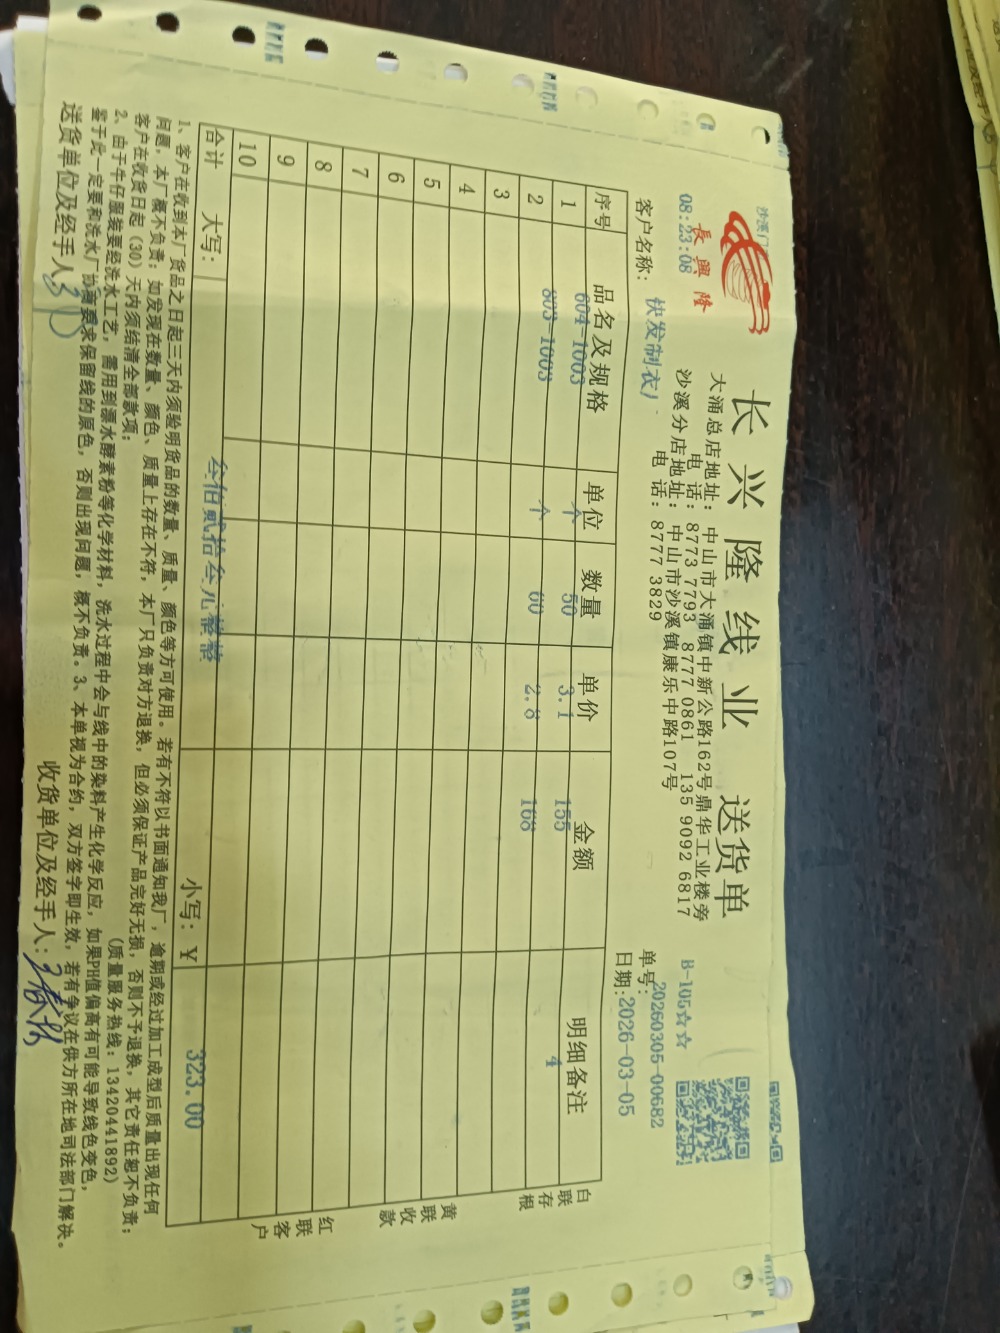 長興隆
沙溪门
08:23:08
长兴隆线业 送货单
大涌总店地址：中山市大涌镇中新公路162号鼎华工业楼旁
电话：8773 7793 8777 0861 135 9092 6817
沙溪分店地址：中山市沙溪镇康乐中路107号
电话：8777 3829
B-105☆☆
单号：20260305-00682
客户名称：快发制衣厂
日期：2026-03-05
序号 品名及规格 单位 数量 单价 金额 明细备注
1 604-1003 个 50 3.1 155 4
2 803-1003 个 60 2.8 168
3
4
5
6
7
8
9
10
合计 大写：叁佰贰拾叁元整 小写：￥ 323.00
白联存根
黄联收款
红联客户
1、客户在收到本厂货品之日起三天内须验明货品的数量、质量、颜色等方可使用。若有不符以书面通知我厂，逾期或经过加工成型后质量出现任何
问题，本厂概不负责；如发现在数量、颜色、质量上存在不符，本厂只负责对方退换，但必须保证产品完好无损，否则不予退换，其它责任恕不负责；
客户在收货日起（30）天内须结清全部款项； （质量服务热线：13420441892）
2、由于牛仔服装要经洗水工艺，需用到漂水酵素粉等化学材料，洗水过程中会与线中的染料产生化学反应，如果PH值偏高有可能导致线色变色，
鉴于此一定要和洗水厂协商要求保留线的原色，否则出现问题，概不负责。3、本单视为合约，双方签字即生效，若有争议在供方所在地司法部门解决。
送货单位及经手人：
收货单位及经手人：